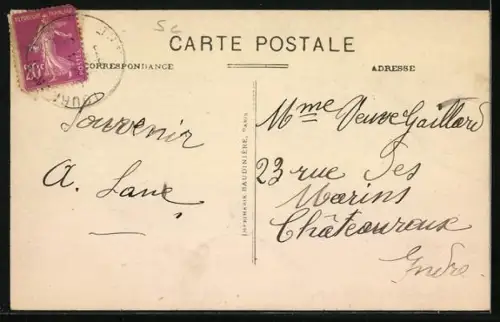 SG
CARTE POSTALE
CORRESPONDANCE
ADRESSE
20c
Souvenir
A. Lane
IMPRIMERIE BAUDINIÈRE, PARIS
Mme Veuve Gaillard
23 rue Des
Marins
Châteauroux
Indre